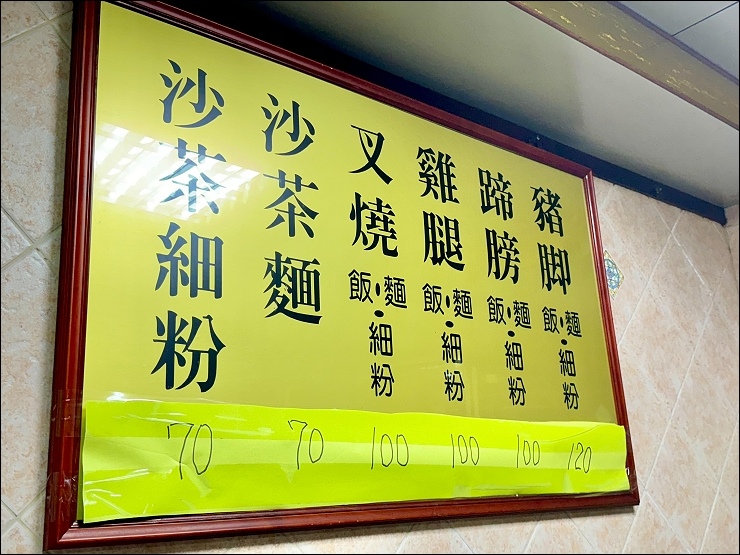 豬脚飯·麵·細粉
蹄膀飯·麵·細粉
雞腿飯·麵·細粉
叉燒飯·麵·細粉
沙茶麵
沙茶細粉
70 70 100 100 100 120